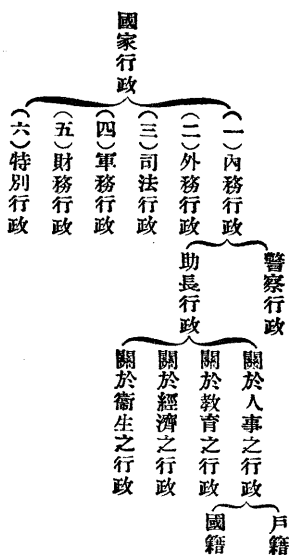 國家行政
(一)內務行政
(二)外務行政
(三)司法行政
(四)軍務行政
(五)財務行政
(六)特別行政
警察行政
助長行政
關於人事之行政
關於教育之行政
關於經濟之行政
關於衞生之行政
戶籍
國籍